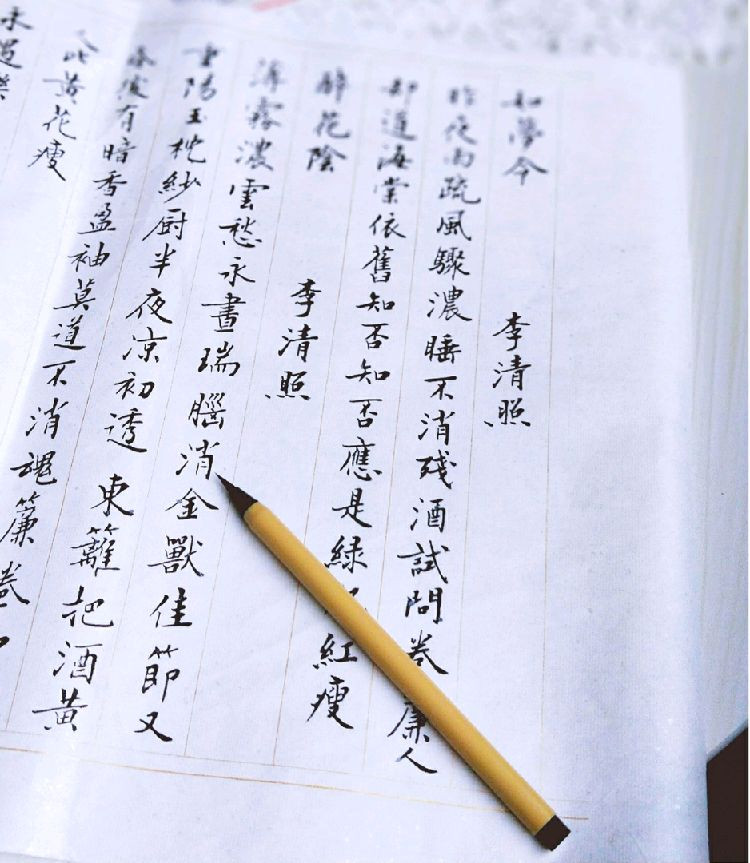 如夢令 李清照
昨夜雨疏風驟濃睡不消殘酒試問卷簾人
却道海棠依舊知否知否應是綠紅瘦
醉花陰 李清照
薄霧濃雲愁永晝瑞腦消金獸佳節又
重陽玉枕紗厨半夜凉初透 東籬把酒黃
昏後有暗香盈袖莫道不消魂簾卷
人比黃花瘦
永遇樂